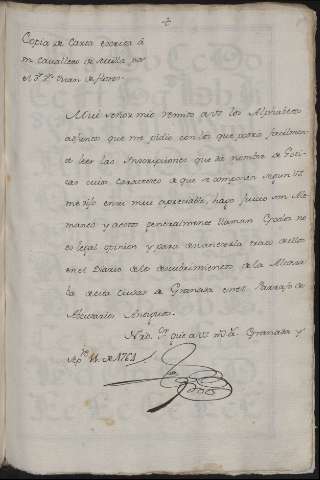 Copia de Carta escrita â
un Cavallero de Sevilla por
el Sr. Dn. Juan de Flores.
Mui señor mio remito a vs los Alphabetos
adjuntos que me pidio con los que podra facilmente
leer las Inscripciones que de nombre de Goti-
cas cuios Caracteres a que se componen segun vs
me dijo en su mui apreciable, hago juicio son
y a estos generalmente llaman Godos no
es legal opinion y para desvanecerla trato de ellos
en el Diario de los descubrimientos de la Alcaza-
ba de esta Ciudad de Granada en el Parrafo de
Antiguos.
que a vs Granada y
11. de 1761